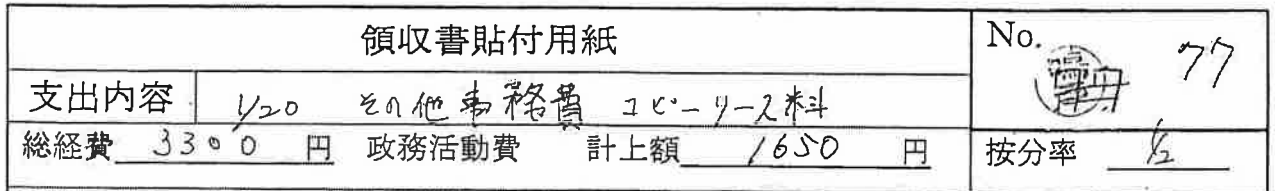 領収書貼付用紙
No. 77
支出内容 1/20 その他事務費 コピーリース料
総経費 3300 円 政務活動費 計上額 1650 円
按分率 1/2